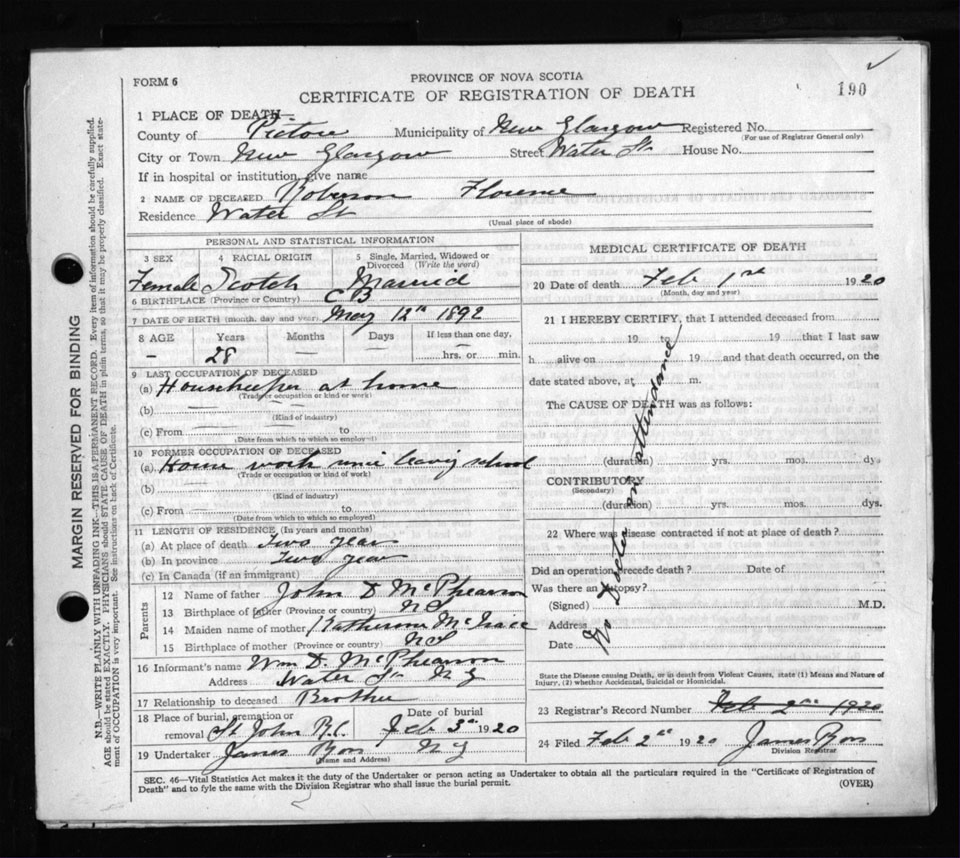 FORM 6
PROVINCE OF NOVA SCOTIA
190
CERTIFICATE OF REGISTRATION OF DEATH
1 PLACE OF DEATH—
County of Pictou Municipality of New Glasgow Registered No.
(For use of Registrar General only)
City or Town New Glasgow Street Water St House No.
If in hospital or institution, give name
2 NAME OF DECEASED Roberson Florence
Residence Water St
(Usual place of abode)
PERSONAL AND STATISTICAL INFORMATION
3 SEX 4 RACIAL ORIGIN 5 Single, Married, Widowed or Divorced (Write the word)
Female Scotch Married
6 BIRTHPLACE (Province or Country) CB
7 DATE OF BIRTH (month, day and year) May 12th 1892
8 AGE Years Months Days If less than one day,
— 28 — — hrs. or min.
9 LAST OCCUPATION OF DECEASED
(a) Housekeeper at home
(Trade or occupation or kind of work)
(b)
(Kind of industry)
(c) From to
(Date from which to which so employed)
10 FORMER OCCUPATION OF DECEASED
(a) House work leaving school
(Trade or occupation or kind of work)
(b)
(Kind of industry)
(c) From to
(Date from which to which so employed)
11 LENGTH OF RESIDENCE (In years and months)
(a) At place of death Two year
(b) In province Two year
(c) In Canada (if an immigrant)
Parents
12 Name of father John D McPhearson
13 Birthplace of father (Province or country) NS
14 Maiden name of mother Katherine
15 Birthplace of mother (Province or country) NS
16 Informant's name Wm D. McPhearson
Address Water St N G
17 Relationship to deceased Brother
18 Place of burial, cremation or removal St John R.C. Date of burial Feb 3rd 1920
19 Undertaker James Ross N G
(Name and Address)
MEDICAL CERTIFICATE OF DEATH
20 Date of death Feb 1st 1920
(Month, day and year)
21 I HEREBY CERTIFY, that I attended deceased from
19 to 19 that I last saw
h alive on 19 and that death occurred, on the
date stated above, at m.
The CAUSE OF DEATH was as follows:
(duration) yrs. mos. dys
CONTRIBUTORY
(Secondary)
(duration) yrs. mos. dys.
22 Where was disease contracted if not at place of death?
Did an operation precede death? Date of
Was there an autopsy?
(Signed) M.D.
Address
Date
No Doctor in attendance
State the Disease causing Death, or in death from Violent Causes, state (1) Means and Nature of
Injury, (2) whether Accidental, Suicidal or Homicidal.
23 Registrar's Record Number Feb 2nd 1920
24 Filed Feb 2nd 1920 James Ross
Division Registrar
SEC. 46—Vital Statistics Act makes it the duty of the Undertaker or person acting as Undertaker to obtain all the particulars required in the "Certificate of Registration of
Death" and to fyle the same with the Division Registrar who shall issue the burial permit. (OVER)
MARGIN RESERVED FOR BINDING
N.B.—WRITE PLAINLY WITH UNFADING INK—THIS IS A PERMANENT RECORD. Every item of information should be carefully supplied.
AGE should be stated EXACTLY. PHYSICIANS should STATE CAUSE OF DEATH in plain terms, so that it may be properly classified. Exact state-
ment of OCCUPATION is very important. See instructions on back of Certificate.